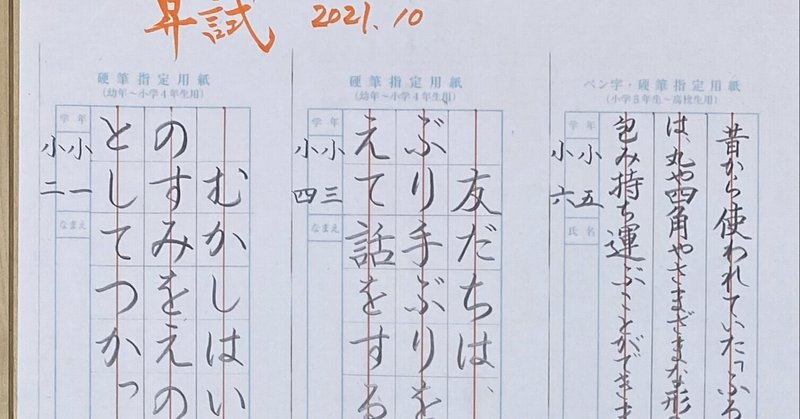 昇試 2021.10
ペン字・硬筆指定用紙
(小学5年生～高校生用)
昔から使われていた「ふろ
は、丸や四角やさまざまな形
包み持ち運ぶことができま
学年
小五
小六
氏名
硬筆指定用紙
(幼年～小学4年生用)
友だちは、
ぶり手ぶりを
えて話をする
学年
小三
小四
なまえ
硬筆指定用紙
(幼年～小学4年生用)
むかしはい
のすみをえの
としてつかっ
学年
小一
小二
なまえ